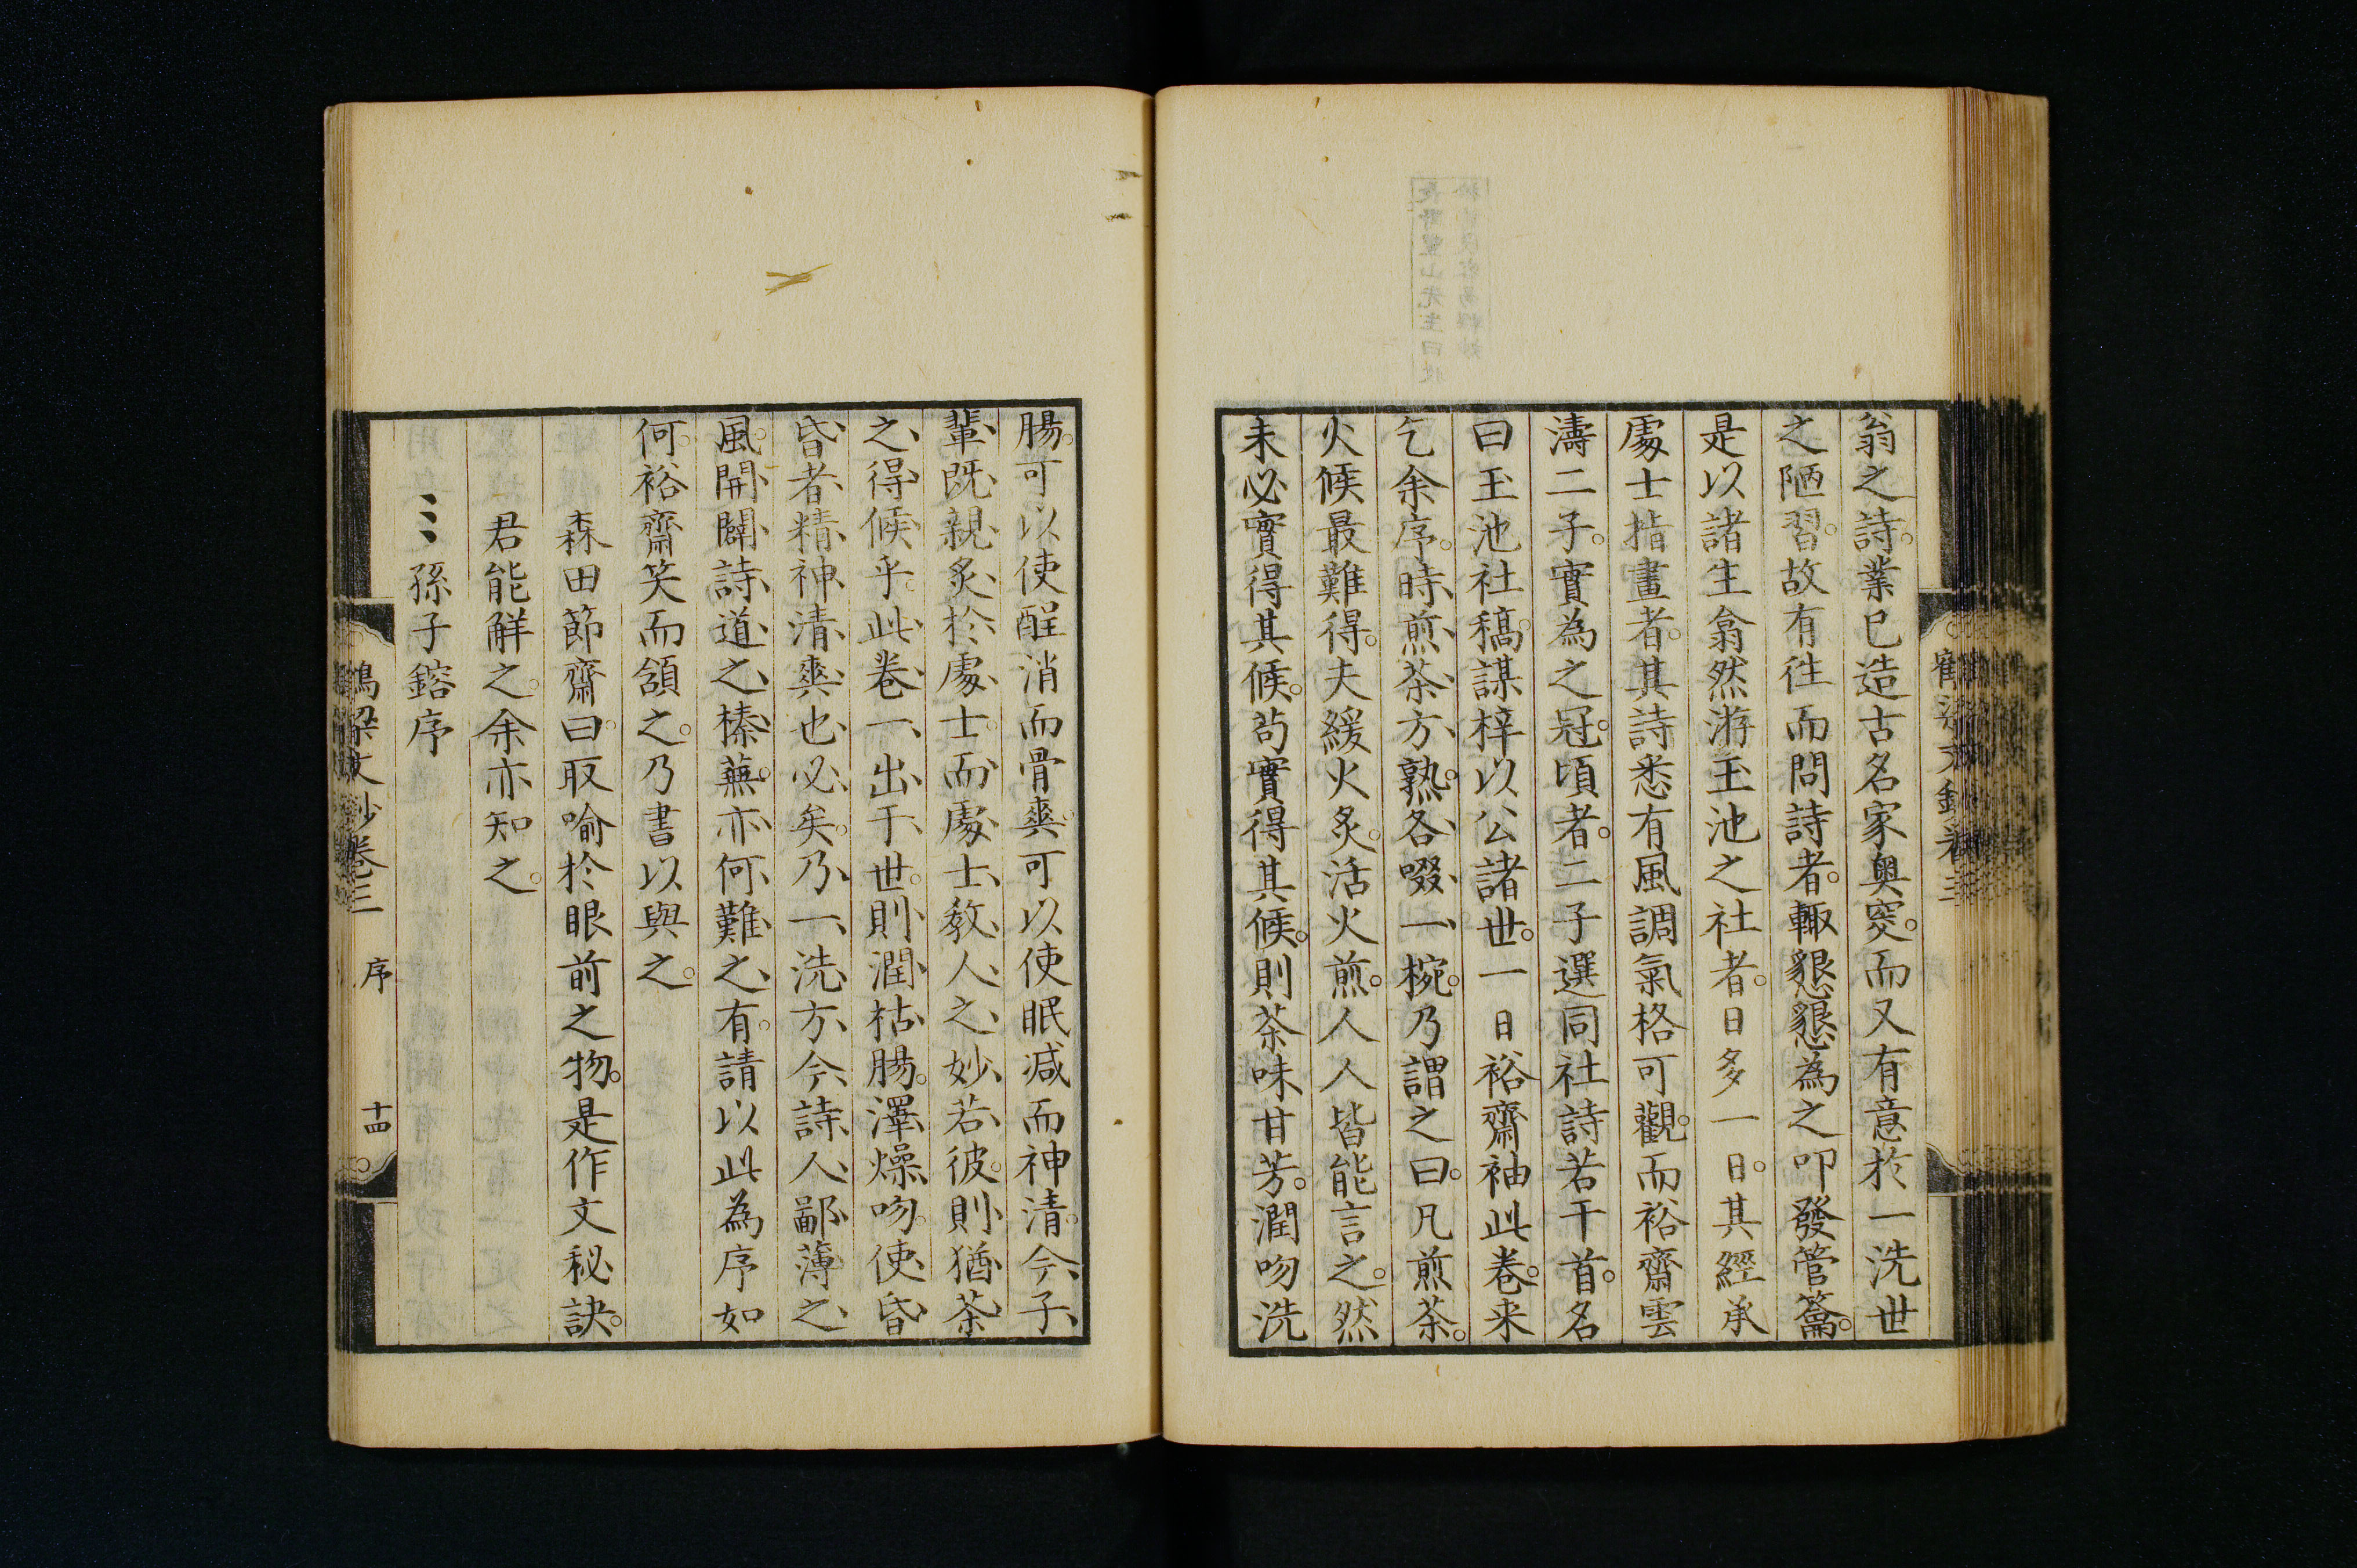 翁之詩。業已造古名家奥窔。而又有意於一洗世
之陋習。故有徃而問詩者。輙懇懇為之叩發管籥。
是以諸生翕然游玉池之社者。日多一日。其經承
處士指畫者。其詩悉有風調氣格可觀。而裕齋雲
濤二子。實為之冠。頃者。二子選同社詩若干首。名
曰玉池社稿。謀梓以公諸世。一日裕齋袖此卷。来
乞余序。時煎茶方熟。各啜一椀。乃謂之曰。凡煎茶。
火候最難得。夫緩火炙。活火煎。人人皆能言之。然
未必實得其候。苟實得其候。則茶味甘芳。潤吻洗
腸。可以使酲消而骨爽。可以使眠减而神清。今子
輩既親炙於處士。而處士教人之妙若彼。則猶茶
之得候乎。此卷一出于世。則潤枯腸。澤燥吻。使昏
昏者精神清爽也必矣。乃一洗方今詩人鄙薄之
風。開闢詩道之榛蕪。亦何難之有。請以此為序如
何。裕齋笑而頷之。乃書以與之。
森田節齋曰。取喻於眼前之物。是作文秘訣。
君能解之。余亦知之。
孫子鎔序
鶴梁文鈔卷三 序 十四